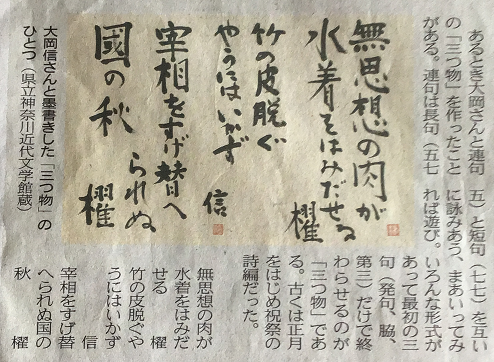 あるとき大岡さんと連句
の「三つ物」を作ったこと
がある。連句は長句（五七
五）と短句（七七）を互い
に詠みあう、まあいってみ
れば遊び。
いろんな形式が
あって最初の三
句（発句、脇、
第三）だけで終
わらせるのが
「三つ物」であ
る。古くは正月
をはじめ祝祭の
詩編だった。
無思想の肉が
水着をはみだ
せる　櫂
竹の皮脱ぐや
うにはいかず
信
宰相をすげ替
へられぬ国の
秋　櫂
無思想の肉が
水着をはみだせる
櫂
竹の皮脱ぐ
やうにはいかず
信
宰相をすげ替へ
られぬ
國の秋　櫂
大岡信さんと墨書きした「三つ物」の
ひとつ（県立神奈川近代文学館蔵）